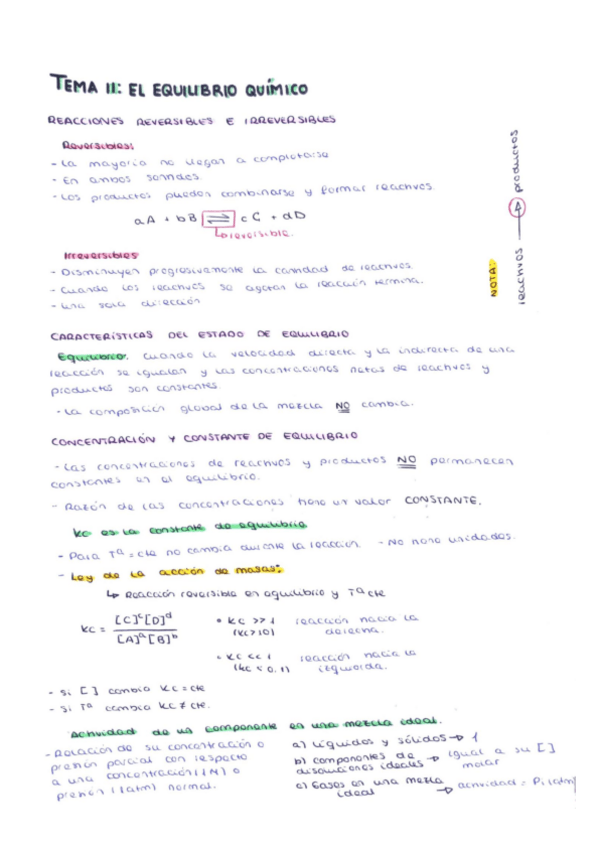 TEMA 11: EL EQUILIBRIO QUÍMICO
REACCIONES REVERSIBLES E IRREVERSIBLES
Reversibles:
- La mayoría no llegan a completarse
- En ambos sentidos.
- Los productos pueden combinarse y formar reactivos.
aA + bB ⇌ cC + dD
↳ reversible.
NOTA:
reactivos → productos
Irreversibles
- Disminuyen progresivamente la cantidad de reactivos.
- Cuando los reactivos se agotan la reacción termina.
- Una sola dirección
CARACTERÍSTICAS DEL ESTADO DE EQUILIBRIO
Equilibrio: cuando la velocidad directa y la indirecta de una
reacción se igualan y las concentraciones netas de reactivos y
productos son constantes.
- La composición global de la mezcla NO cambia.
CONCENTRACIÓN Y CONSTANTE DE EQUILIBRIO
- Las concentraciones de reactivos y productos NO permanecen
constantes en el equilibrio.
- Razón de las concentraciones tiene un valor CONSTANTE.
Kc es la constante de equilibrio
- Para Tª = cte no cambia durante la reacción. - No tiene unidades.
- Ley de la acción de masas:
↳ Reacción reversible en equilibrio y Tª cte
Kc = [C]^c [D]^d / [A]^a [B]^b
• Kc >> 1 reacción hacia la
(Kc > 10) derecha.
• Kc << 1 reacción hacia la
(Kc < 0.1) izquierda.
- Si [ ] cambia Kc = cte
- Si Tª cambia Kc ≠ cte.
Actividad de un componente en una mezcla ideal.
- Relación de su concentración o
presión parcial con respecto
a una concentración (1M) o
presión (1atm) normal.
a) Líquidos y sólidos → 1
b) componentes de disoluciones ideales → igual a su [ ] molar
c) Gases en una mezcla ideal → actividad = Pi (atm)